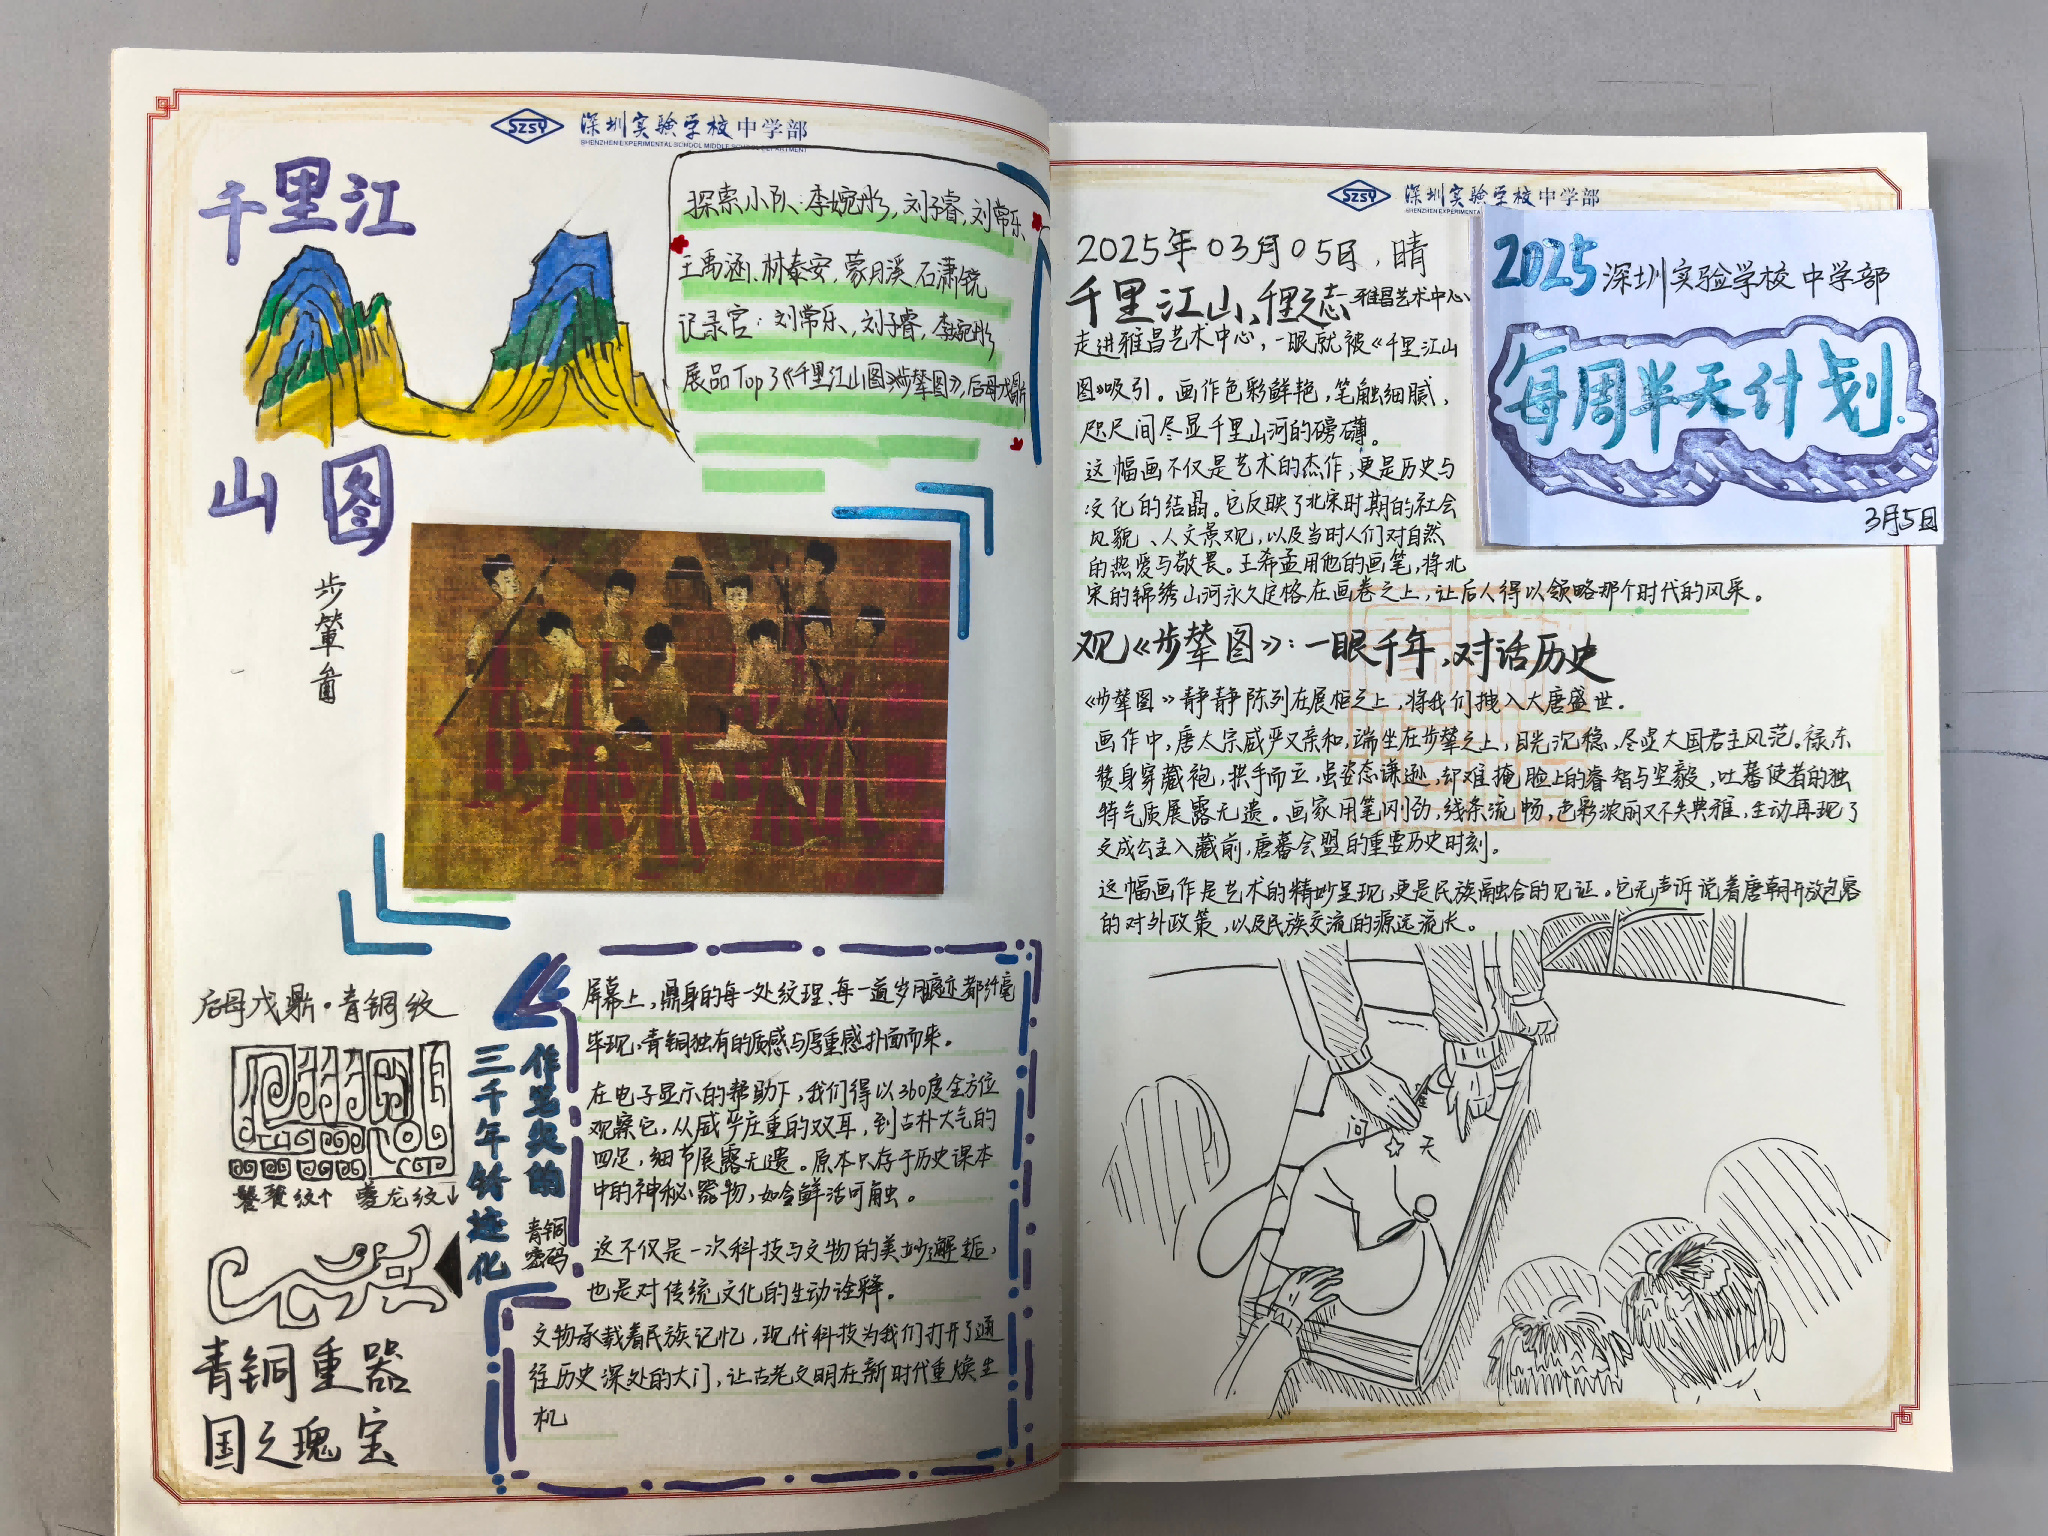 SZSY 深圳实验学校中学部
SHENZHEN EXPERIMENTAL SCHOOL MIDDLE SCHOOL DEPARTMENT
千里江
山图
探索小队：李婉彤，刘子睿，刘常乐
王禹涵、林泰安，蒙月溪 石潇锐
记录官：刘常乐、刘子睿，李婉彤
展品Top3《千里江山图》《步辇图》，后母戊鼎
步辇图
后母戊鼎·青铜纹
饕餮纹↑ 夔龙纹↓
青铜重器
国之瑰宝
三千年铸迹化
作荧炎的
青铜
密码
屏幕上，鼎身的每一处纹理、每一道岁月痕迹都纤毫
毕现，青铜独有的质感与厚重感扑面而来。
在电子显示的帮助下，我们得以360度全方位
观察它，从威严庄重的双耳，到古朴大气的
四足，细节展露无遗。原本只存于历史课本
中的神秘器物，如今鲜活可触。
这不仅是一次科技与文物的美妙邂逅，
也是对传统文化的生动诠释。
文物承载着民族记忆，现代科技为我们打开了通
往历史深处的大门，让古老文明在新时代重焕生
机
SZSY 深圳实验学校中学部
SHENZHEN EXPERIMENTAL
2025年03月05日，晴
千里江山、千里之志 雅昌艺术中心
走进雅昌艺术中心，一眼就被《千里江山
图》吸引。画作色彩鲜艳，笔触细腻，
咫尺间尽显千里山河的磅礴。
这幅画不仅是艺术的杰作，更是历史与
文化的结晶。它反映了北宋时期的社会
风貌、人文景观，以及当时人们对自然
的热爱与敬畏。王希孟用他的画笔，将北
宋的锦绣山河永久定格在画卷之上，让后人得以领略那个时代的风采。
2025 深圳实验学校 中学部
每周半天计划
3月5日
观《步辇图》：一眼千年，对话历史
《步辇图》静静陈列在展柜之上，将我们拽入大唐盛世.
画作中，唐太宗威严又亲和，端坐在步辇之上，目光沉稳，尽显大国君主风范。禄东
赞身穿藏袍，拱手而立，虽姿态谦逊，却难掩脸上的睿智与坚毅，吐蕃使者的独
特气质展露无遗。画家用笔刚劲，线条流畅，色彩浓丽又不失典雅，生动再现了
文成公主入藏前，唐蕃会盟的重要历史时刻。
这幅画作是艺术的精妙呈现，更是民族融合的见证。它无声诉说着唐朝开放包容
的对外政策，以及民族交流的源远流长。
问 天